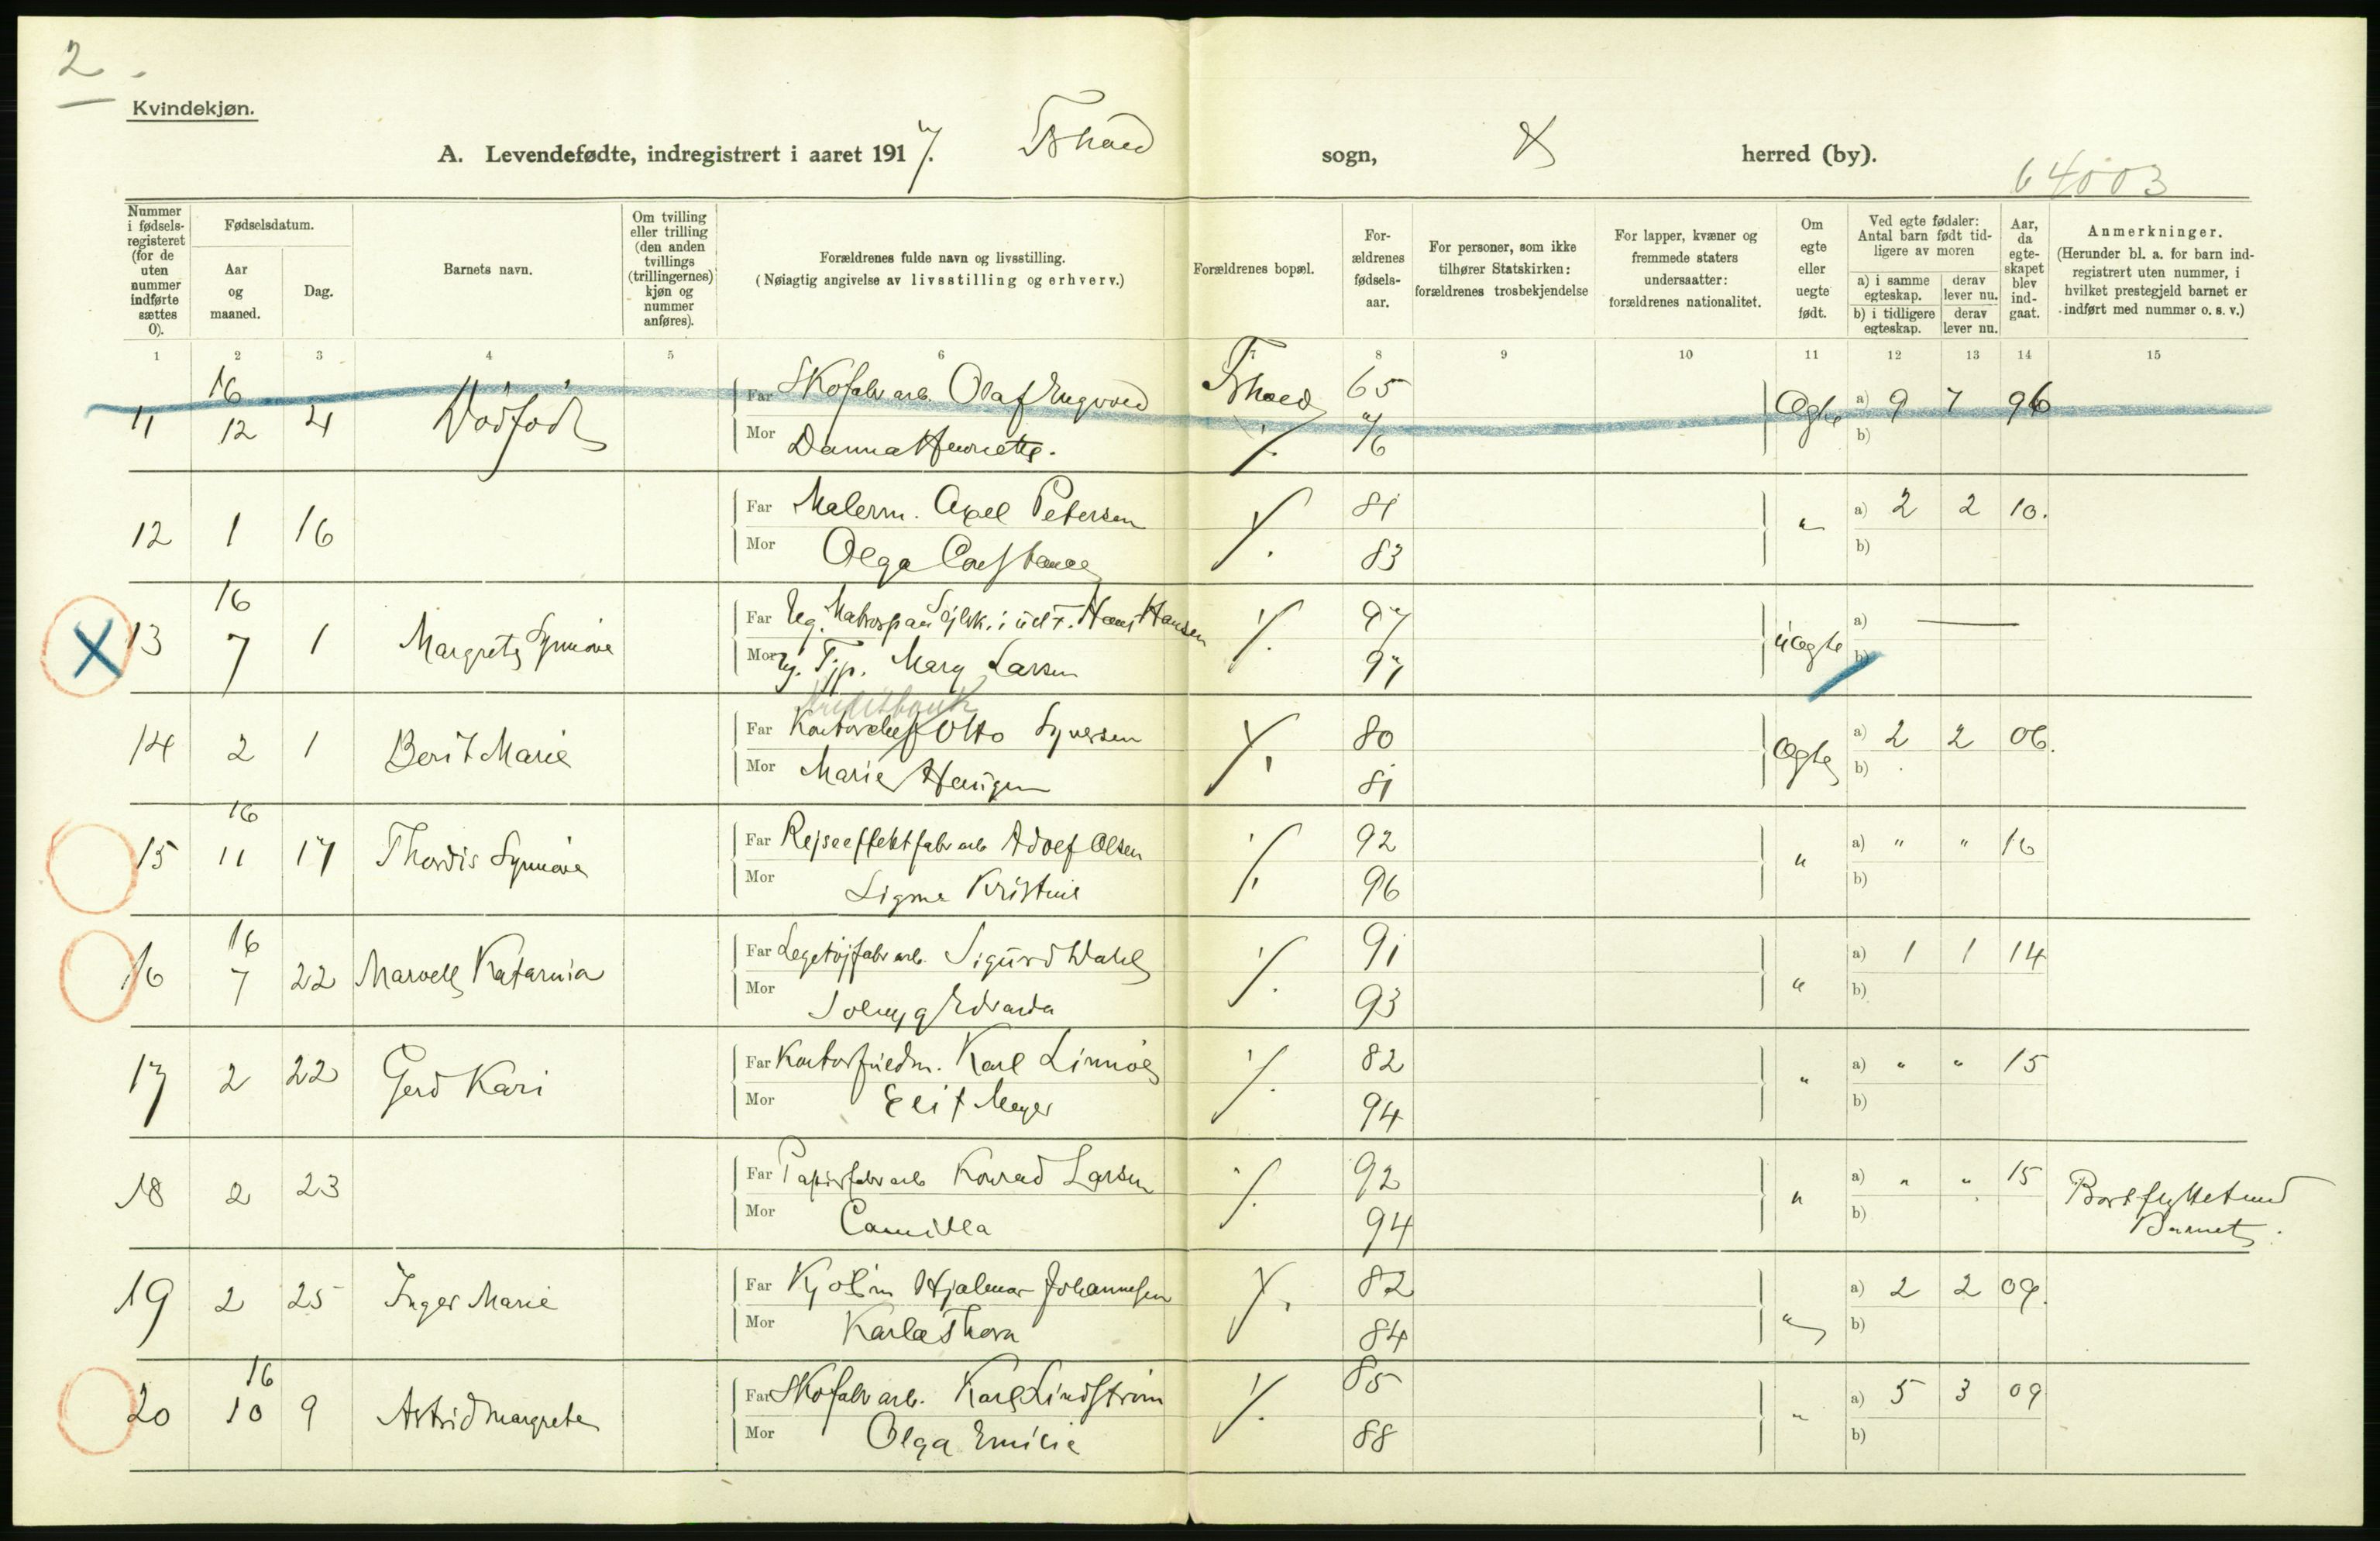 2.
Kvindekjøn.
A. Levendefødte, indregistrert i aaret 1917.
sogn,
herred (by).
64003
Nummer i fødsels-registeret (for de uten nummer indførte sættes 0).
Fødselsdatum.
Aar og maaned.
Dag.
Barnets navn.
Om tvilling eller trilling (den anden tvillings (trillingernes) kjøn og nummer anføres).
Forældrenes fulde navn og livsstilling.
(Nøiagtig angivelse av livsstilling og erhverv.)
Forældrenes bopæl.
For-ældrenes fødsels-aar.
For personer, som ikke tilhører Statskirken: forældrenes trosbekjendelse
For lapper, kvæner og fremmede staters undersaatter: forældrenes nationalitet.
Om egte eller uegte født.
Ved egte fødsler: Antal barn født tid-ligere av moren
a) i samme egteskap.
derav lever nu.
b) i tidligere egteskap.
derav lever nu.
Aar, da egte-skapet blev ind-gaat.
Anmerkninger.
(Herunder bl. a. for barn ind-registrert uten nummer, i hvilket prestegjeld barnet er indført med nummer o. s. v.)
1 2 3 4 5 6 7 8 9 10 11 12 13 14 15
11 16 12 4 Dødfødt Far Skofabr arb. Olaf Engvold 65 Ægte a) 9 7 96
Mor Danna Henriette. 76 b)
12 1 16 Far Malerm. Axel Petersen 81 " a) 2 2 10.
Mor Olga Constance 83 b)
13 16 7 1 Margrete Synnøve Far Ug. Hans Hansen 97 uægte a) —
Mor Ug. Mary Larsen 97 b)
14 2 1 Berit Marie Far Kontorchef Otto Syversen 80 Ægte a) 2 2 06.
Mor Marie Haugen 81 b)
15 16 11 17 Thordis Synnøve Far Rejseeffektfabr arb Adolf Olsen 92 " a) " " 16
Mor Signe Kristine 96 b)
16 16 7 22 Katarina Far Legetøjfabr arb. Sigurd Dahl 91 " a) 1 1 14
Mor Solveyg Edvarda 93 b)
17 2 22 Gerd Kari Far Kontorfuldm. Karl Linnøe 82 " a) " " 15
Mor Elif Meyer 94 b)
18 2 23 Far Papirfabr arb Konrad Larsen 92 " a) " " 15 Bortflyttet med
Mor Camilla 94 b) Barnet.
19 2 25 Inger Marie Far Kjøbm Hjalmar Johannesen 82 " a) 2 2 09.
Mor Karla Thora 84 b)
20 16 10 9 Astrid Margrete Far Skofabr arb. Karl Lindstrøm 85 " a) 5 3 09
Mor Olga Emilie 88 b)